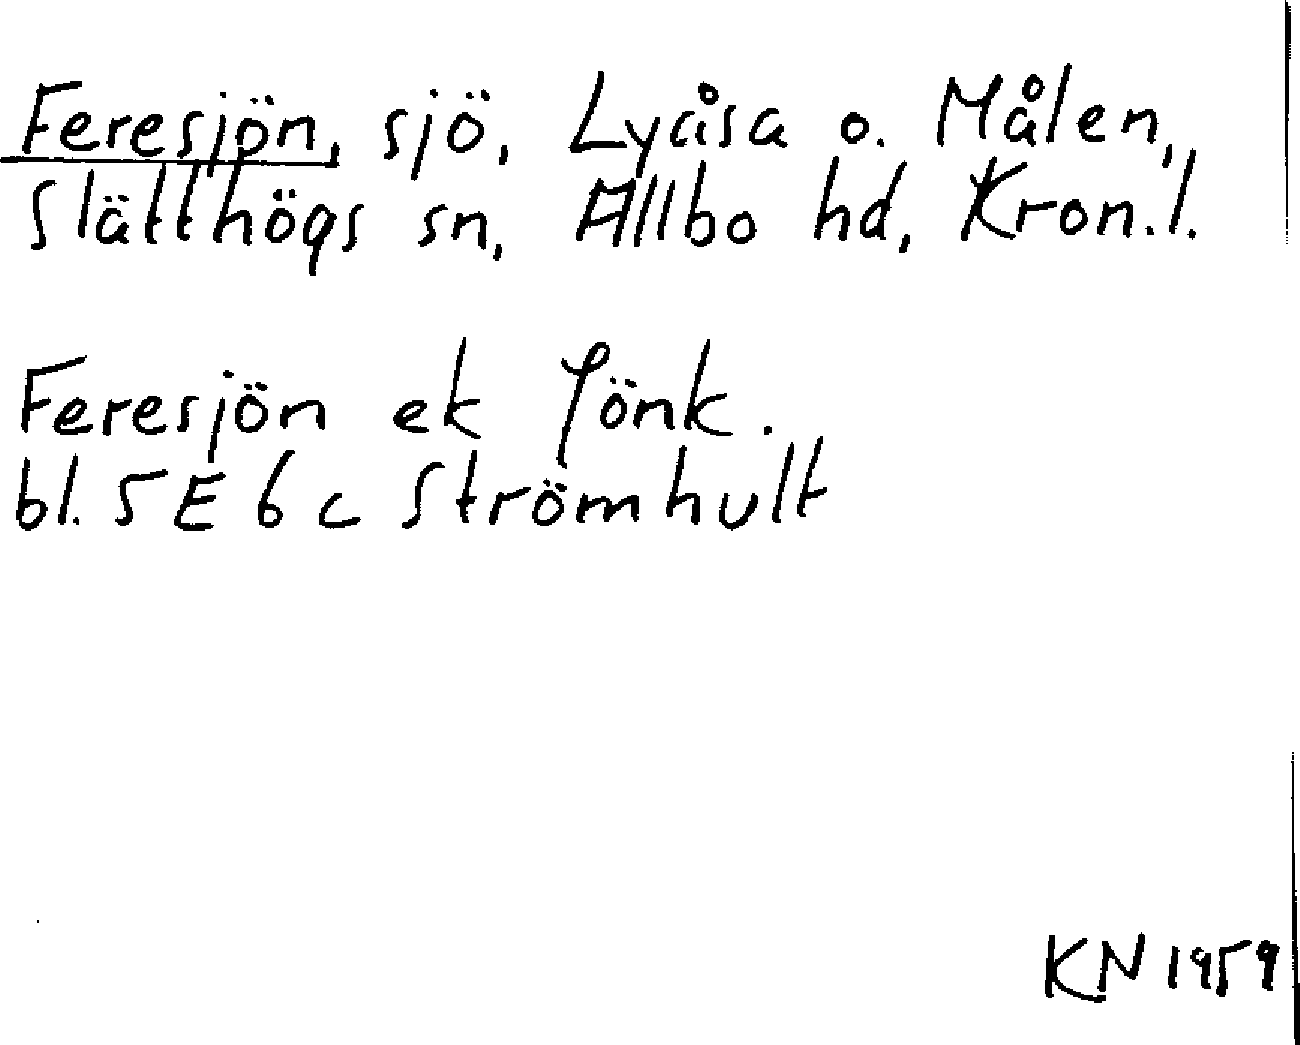 Feresjön, sjö, Lyåsa o. Målen,
Slätthögs sn, Allbo hd, Kron.l.
Feresjön ek Jönk.
bl. 5 E 6 c Strömhult
KN 1959